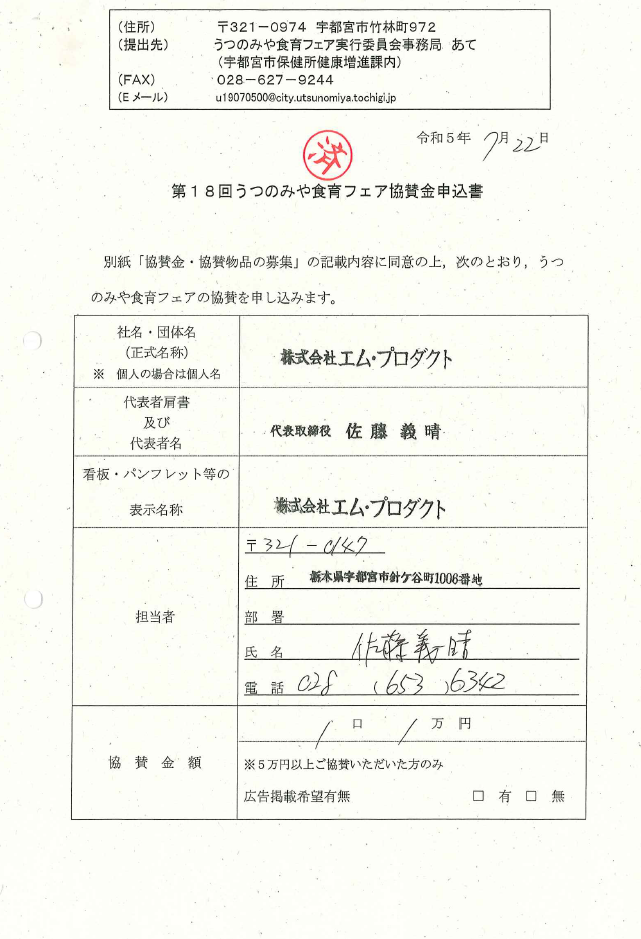 （住所） 〒３２１－０９７４ 宇都宮市竹林町９７２
（提出先） うつのみや食育フェア実行委員会事務局 あて
（宇都宮市保健所健康増進課内）
（ＦＡＸ） ０２８－６２７－９２４４
（Ｅメール） u19070500@city.utsunomiya.tochigi.jp
令和５年 7月 22日
済
第１８回うつのみや食育フェア協賛金申込書
別紙「協賛金・協賛物品の募集」の記載内容に同意の上，次のとおり，うつ
のみや食育フェアの協賛を申し込みます。
社名・団体名
（正式名称）
※ 個人の場合は個人名
株式会社エム・プロダクト
代表者肩書
及び
代表者名
代表取締役 佐藤義晴
看板・パンフレット等の
表示名称
株式会社エム・プロダクト
担当者
〒321－0147
住所 栃木県宇都宮市針ケ谷町1006番地
部署
氏名 佐藤義晴
電話 028 （653 ）6342
協賛金額
1 口 1 万円
※５万円以上ご協賛いただいた方のみ
広告掲載希望有無 □ 有 □ 無